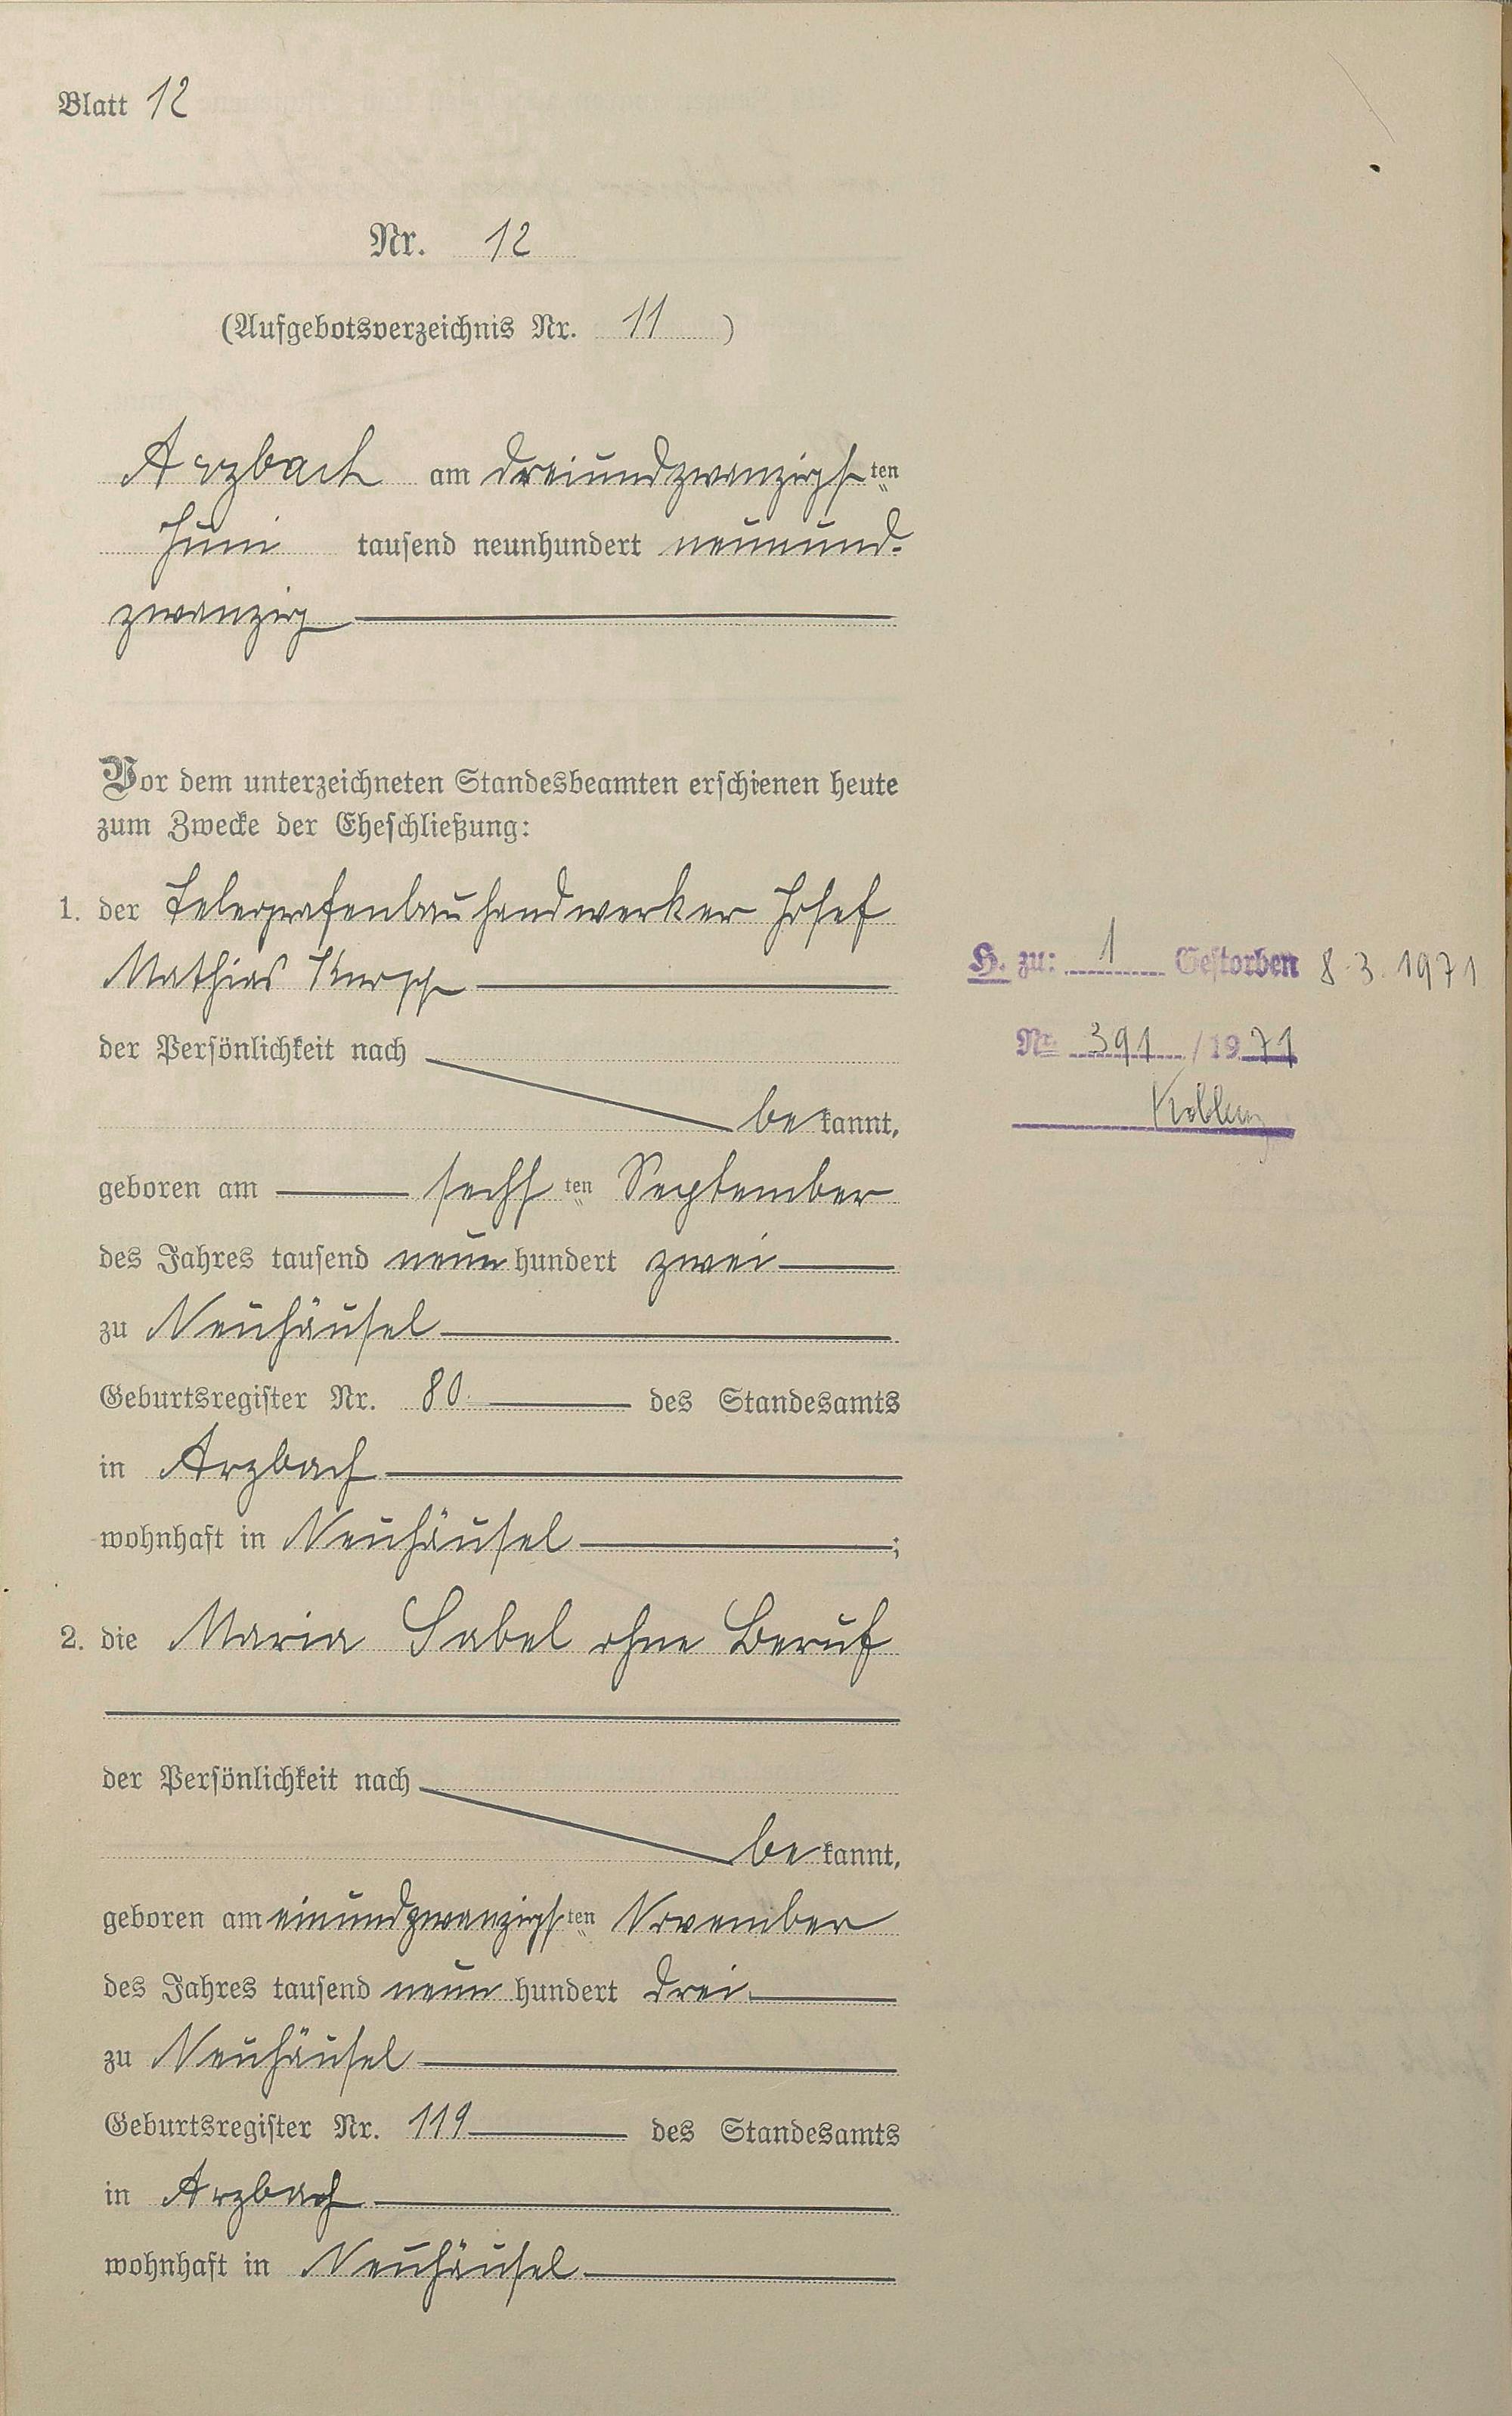 Blatt 12
Nr. 12
(Aufgebotsverzeichnis Nr. 11)
Arzbach am dreiundzwanzigsten
Juni tausend neunhundert neunund-
zwanzig
Vor dem unterzeichneten Standesbeamten erschienen heute
zum Zwecke der Eheschließung:
1. der Telegrafenbauhandwerker Josef
Mathias
der Persönlichkeit nach
bekannt,
geboren am sechsten September
des Jahres tausend neunhundert zwei
zu Neuhäusel
Geburtsregister Nr. 80 des Standesamts
in Arzbach
wohnhaft in Neuhäusel;
2. die Maria Sabel ohne Beruf
der Persönlichkeit nach
bekannt,
geboren am einundzwanzigsten November
des Jahres tausend neunhundert drei
zu Neuhäusel
Geburtsregister Nr. 119 des Standesamts
in Arzbach
wohnhaft in Neuhäusel
H. zu: 1 Gestorben 8.3.1971
Nr. 391/1971
Koblenz